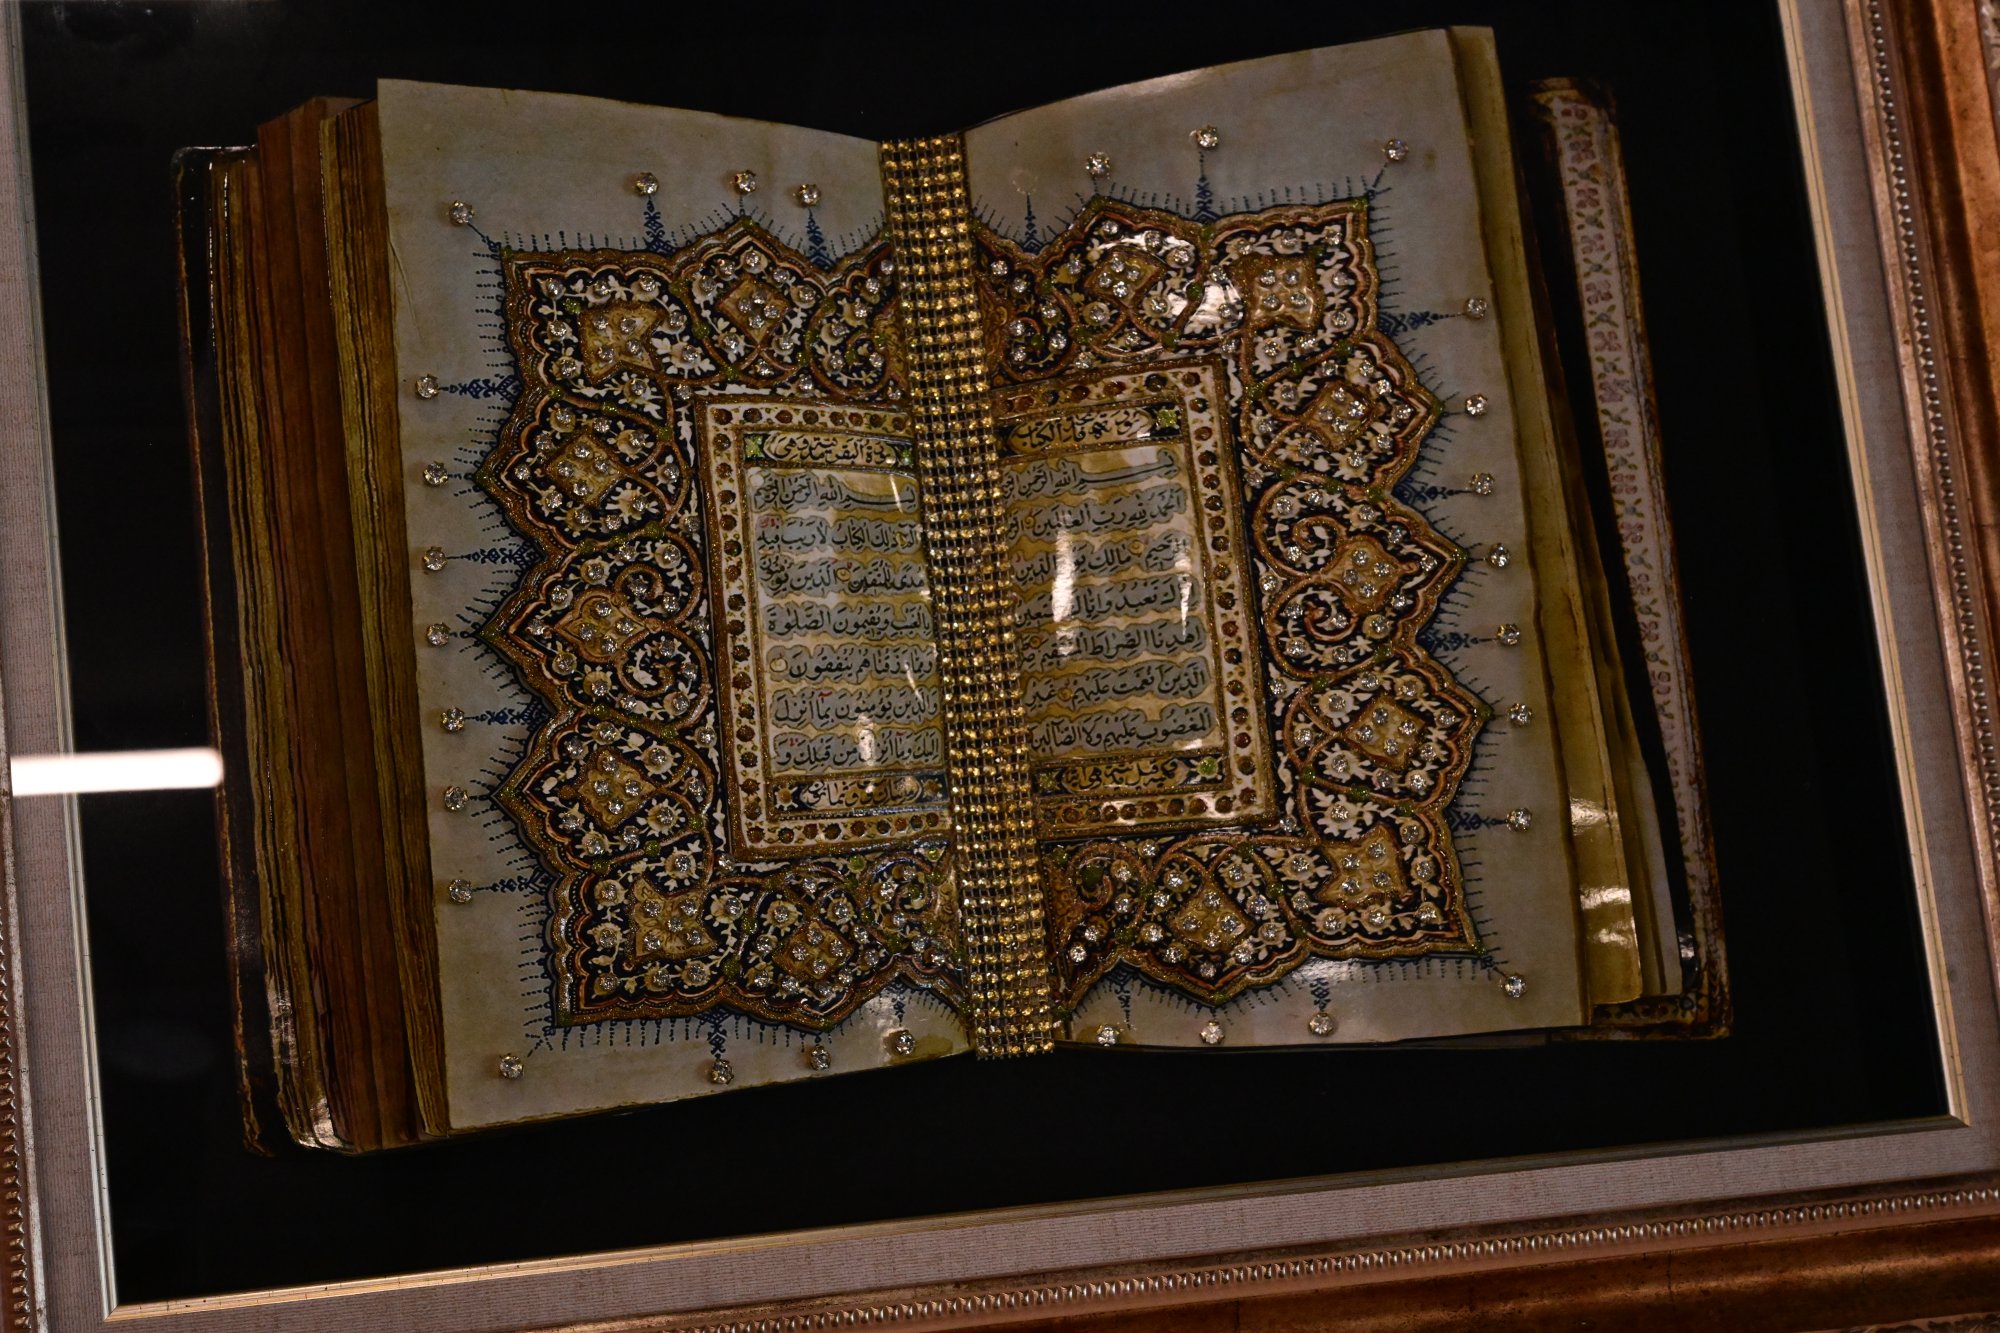 فاتحة الكتاب
بسم الله الرحمن
الحمد لله رب العالمين
الرحيم مالك يوم الدين
نعبد وإياك نستعين
اهدنا الصراط المستقيم
الذين أنعمت عليهم غير
المغضوب عليهم ولا الضالين
سورة البقرة
بسم الله الرحمن الرحيم
الم ذلك الكتاب لا ريب فيه
هدى للمتقين الذين يؤمنون
بالغيب ويقيمون الصلوة
ومما رزقناهم ينفقون
والذين يؤمنون بما أنزل
إليك وما أنزل من قبلك و